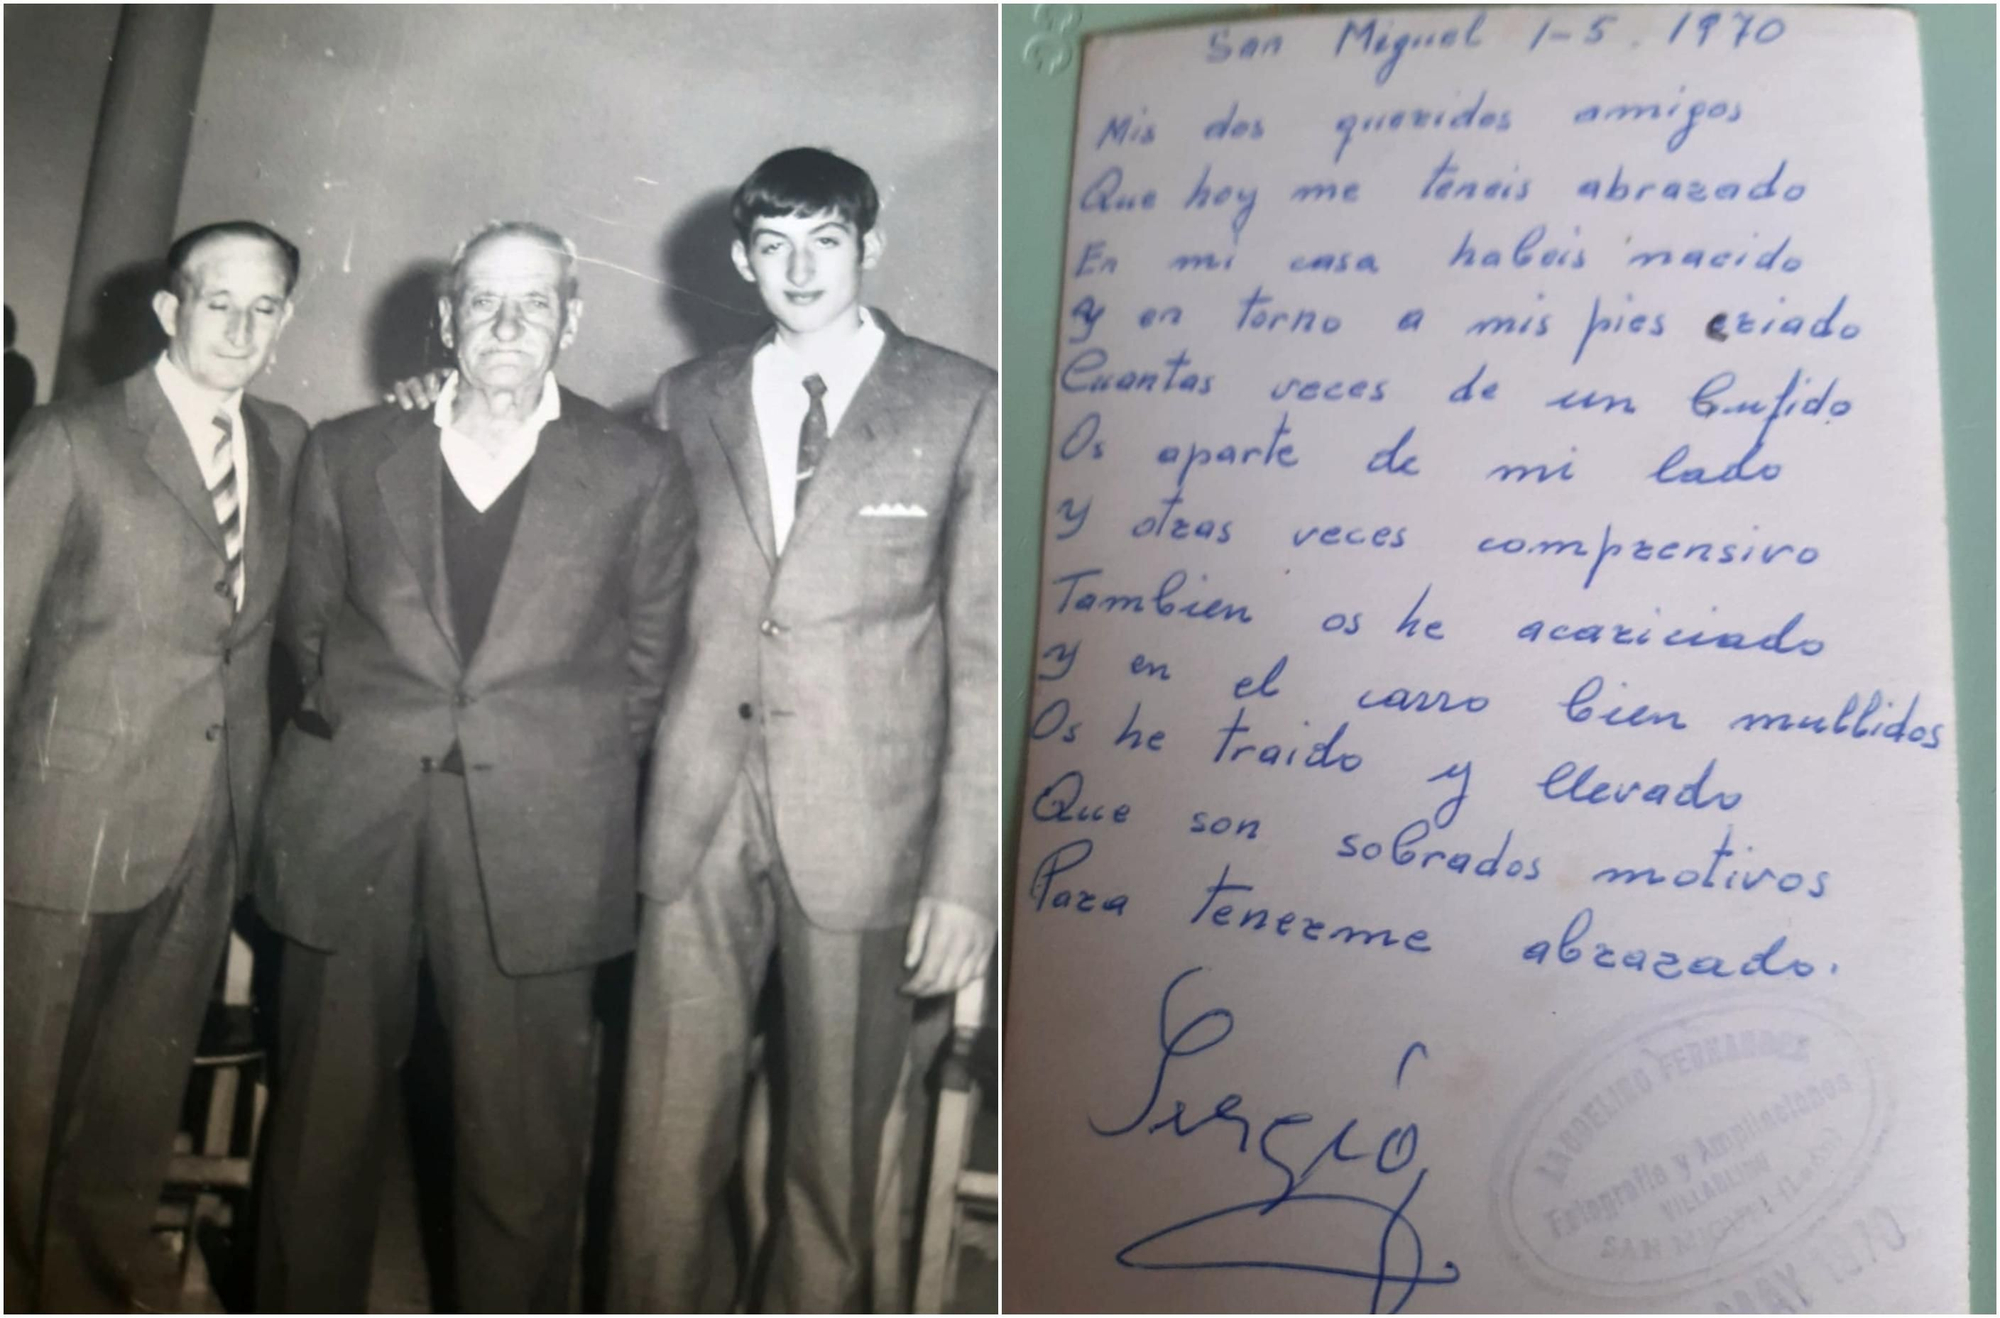 San Miguel 1-5. 1970
Mis dos queridos amigos
Que hoy me teneis abrazado
En mi casa habeis nacido
Y en torno a mis pies criado
Cuantas veces de un bufido
Os aparte de mi lado
Y otras veces comprensivo
Tambien os he acariciado
Y en el carro bien mullidos
Os he traido y llevado
Que son sobrados motivos
Para tenerme abrazado.
Sergió
LAUDELINO FERNANDEZ
Fotografia y Ampliaciones
VILLABLINO
SAN MIGUEL (León)
MAY 1970